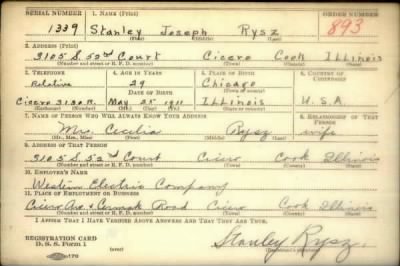 SERIAL NUMBER 1. NAME (Print) ORDER NUMBER
1339 Stanley Joseph Rysz 893
(First) (Middle) (Last)
2. ADDRESS (Print)
3105 S. 52nd Court Cicero Cook Illinois
(Number and street or R. F. D. number) (Town) (County) (State)
3. TELEPHONE 4. AGE IN YEARS 5. PLACE OF BIRTH 6. COUNTRY OF CITIZENSHIP
Relative 29 Chicago
DATE OF BIRTH (Town or county)
Cicero 3130 R. May 25 1911 Illinois U.S.A.
(Exchange) (Number) (Mo.) (Day) (Yr.) (State or country)
7. NAME OF PERSON WHO WILL ALWAYS KNOW YOUR ADDRESS 8. RELATIONSHIP OF THAT PERSON
Mrs. Cecilia Rysz wife
(Mr., Mrs., Miss) (First) (Middle) (Last)
9. ADDRESS OF THAT PERSON
3105 S. 52nd Court Cicero Cook Illinois
(Number and street or R. F. D. number) (Town) (County) (State)
10. EMPLOYER'S NAME
Western Electric Company
11. PLACE OF EMPLOYMENT OR BUSINESS
Cicero Ave. & Cermak Road Cicero Cook Illinois
(Number and street or R. F. D. number) (Town) (County) (State)
I AFFIRM THAT I HAVE VERIFIED ABOVE ANSWERS AND THAT THEY ARE TRUE.
REGISTRATION CARD
D. S. S. Form 1 (over) Stanley Rysz.